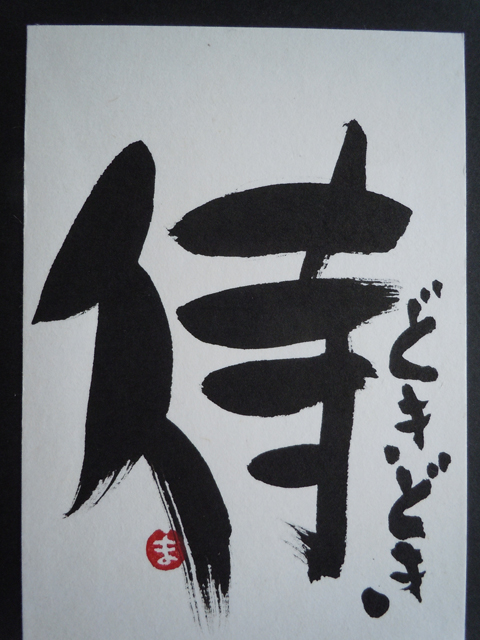 待
どきどき。
ま